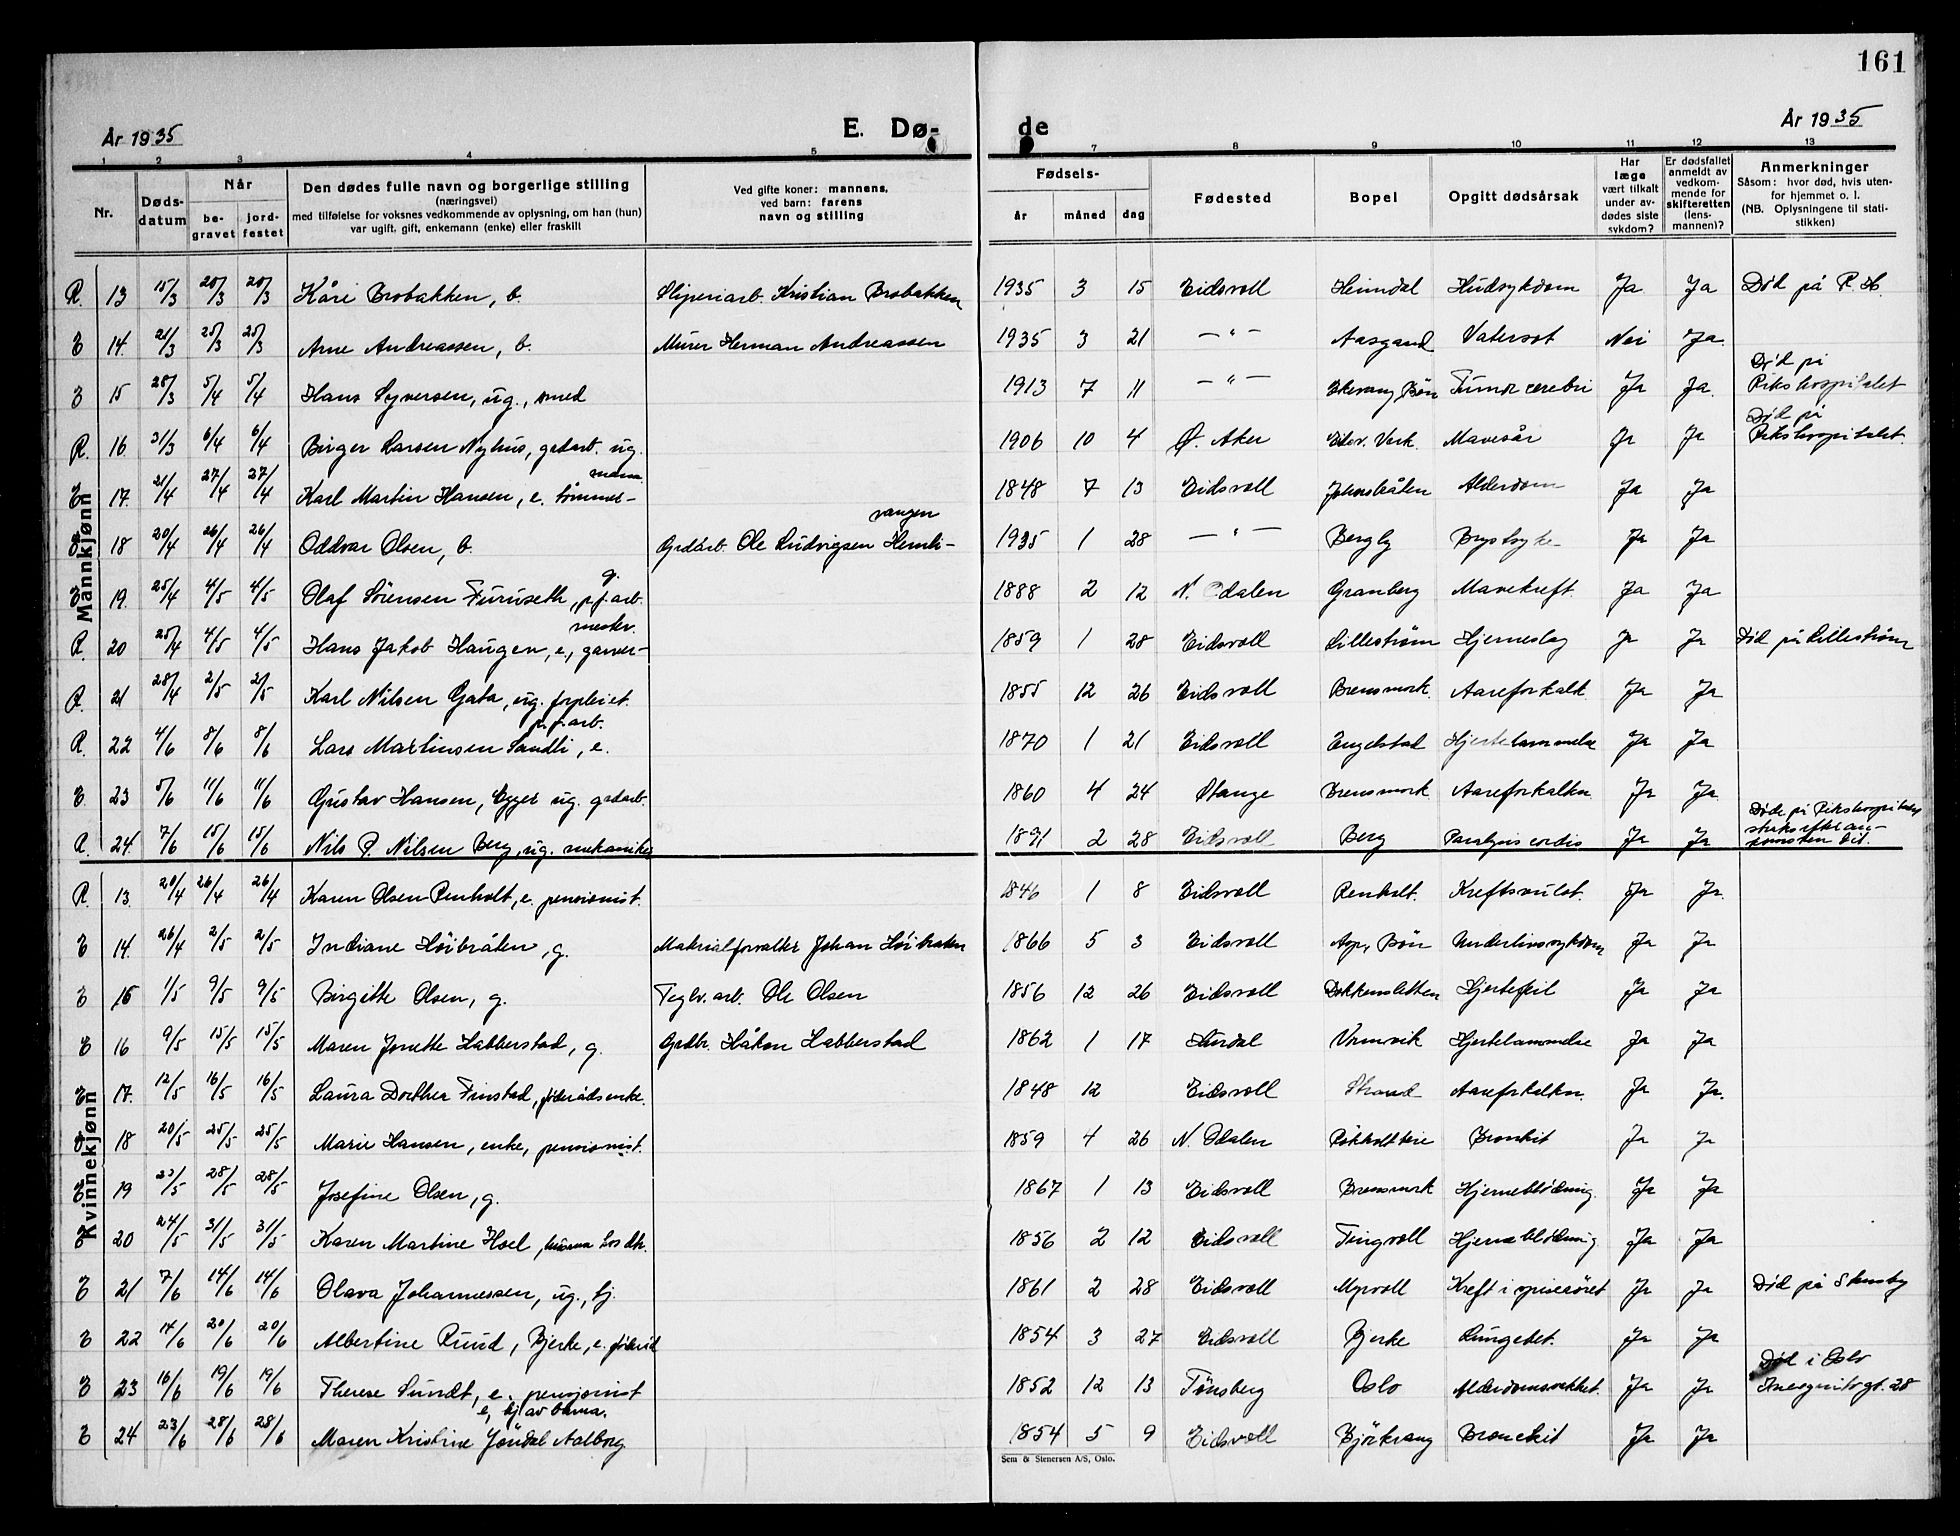 161
År 1935 E. Dø- de År 1935
1 2 3 4 5 7 8 9 10 11 12 13
Nr. Døds-datum Når be-gravet jord-festet Den dødes fulle navn og borgerlige stilling (næringsvei) med tilføielse for voksnes vedkommende av oplysning, om han (hun) var ugift, gift, enkemann (enke) eller fraskilt Ved gifte koner: mannens, ved barn: farens navn og stilling Fødsels- år måned dag Fødested Bopel Opgitt dødsårsak Har læge vært tilkalt under av-dødes siste sykdom? Er dødsfallet anmeldt av vedkom-mende for skifteretten (lens-mannen)? Anmerkninger Såsom: hvor død, hvis uten-for hjemmet o. l. (NB. Oplysningene til stati-stikken)
Mannkjønn
R. 13 15/3 20/3 20/3 Kåre Brobakken, b. Sliperiarb. Kristian Brobakken 1935 3 15 Eidsvoll Heimdal Hudsykdom Ja Ja Død på R.H.
E 14. 21/3 25/3 25/3 Arne Andreassen, b. Murer Herman Andreassen 1935 3 21 — " — Aasgaard Vatersot Nei Ja
E 15 28/3 5/4 5/4 Hans Syversen, ug., smed 1913 7 11 — " — Ekevang Bøn Tumor cerebri Ja Ja. Død på Rikshospitalet
R. 16. 31/3 6/4 6/4 Birger Larsen Nyhus, grdarb. ug. 1906 10 4 Ø. Aker Eidsv. Verk Mavesår Ja Ja Død på Rikshospitalet.
E 17. 21/4 27/4 27/4 Karl Martin Hansen, e. tømmer-mann 1848 7 13 Eidsvoll Johnsbråten Alderdom Ja Ja
E 18 20/4 26/4 26/4 Oddvar Olsen, b. Grdarb. Ole Ludvigsen Hemli-vangen 1935 1 28 — " — Bergly Brystsyke Ja Ja
E 19. 25/4 4/5 4/5 Olaf Sörensen Furuseth, g. p.f. arb. 1888 2 12 N. Odalen Granberg Mavekreft. Ja Ja
R. 20 25/4 4/5 4/5 Hans Jakob Haugen, e., garver-mester. 1859 1 28 Eidsvoll Lillestrøm Hjerneslag Ja Ja Død på Lillestrøm
R. 21 28/4 2/5 2/5 Karl Nilsen Gata, ug. forpleiet. 1855 12 26 Eidsvoll Brensmork. Aareforkalk Ja Ja
R. 22 4/6 8/6 8/6 Lars Martinsen Sandli, e. p.f. arb. 1870 1 21 Eidsvoll Engelstad Hjertelammelse Ja Ja
E. 23 5/6 11/6 11/6 Gustav Hansen, Egger ug. grdarb. 1860 4 24 Stange Brensmork. Aareforkalkn. Ja Ja.
R. 24. 7/6 15/6 15/6 Nils P. Nilsen Berg, ug. mekaniker 1891 2 28 Eidsvoll Berg Paralysis cordis Ja Ja Døde på Rikshospitalet straks efter an-komsten dit.
Kvinnekjønn
R. 13. 20/4 26/4 26/4 Karen Olsen Renholt, e. pensionist. 1846 1 8 Eidsvoll Renholt. Kreftsvulst. Ja Ja.
E 14. 26/4 2/5 2/5 Indiane Höibråten, g. Materialforvalter Johan Höibraten 1866 5 3 Eidsvoll Bøn Underlivssykdom Ja Ja
E 15 1/5 9/5 9/5 Birgitte Olsen, g. Teglv. arb. Ole Olsen 1856 12 26 Eidsvoll Dokkensletten Hjertefeil Ja Ja
E 16 9/5 15/5 15/5 Maren Jonette Habberstad, g. Grdbr. Håkon Habberstad 1862 1 17 Hurdal Vormvik Hjertelammelse Ja Ja
E 17. 12/5 16/5 16/5 Laura Dorthea Finstad, føderådsenke. 1848 12 Eidsvoll Strand Aareforkalkn. Ja Ja.
E 18 20/5 25/5 25/5 Marie Hansen, enke, pensionist. 1859 4 26 N. Odalen Bronkit Ja Ja
E 19 23/5 28/5 28/5 Josefine Olsen, g. 1867 1 13 Eidsvoll Brensmork Hjerneblödning. Ja Ja
E 20 24/5 31/5 31/5 Karen Martine Hoel, 1856 2 12 Eidsvoll Tingvoll Hjerneblödning Ja Ja
E 21 7/6 14/6 14/6 Olava Johannessen, ug., tj. 1861 2 28 Eidsvoll Myrvoll Kreft i spiserøret Ja Ja Død på Stensby
E 22 14/6 20/6 20/6 Albertine Ruud, Bjerke, e. føderåd 1854 3 27 Eidsvoll Bjerke Lungebet. Ja Ja
E 23 16/6 19/6 19/6 Therese Sundt, e. pensjonist 1852 12 13 Tønsberg Oslo Alderdomssvekket. Ja Ja Død i Oslo
E 24 23/6 28/6 28/6 Maren Kristine Jöndal Aalborg e, tj av barna. 1854 5 9 Eidsvoll Björkvang Bronckit Ja Ja
Sem & Stenersen A/S, Oslo.